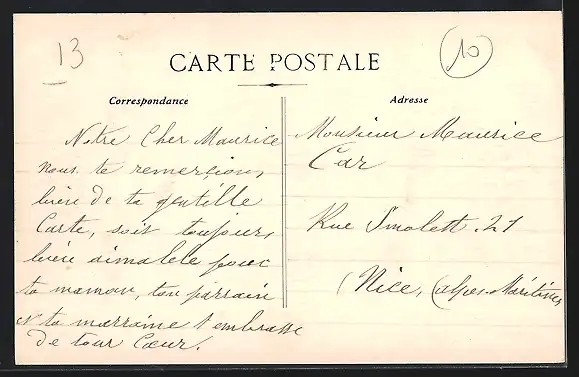 13
10
CARTE POSTALE
Correspondance
Adresse
Notre Cher Maurice
nous te remercions
bien de ta gentille
Carte, soit toujours
bien aimable pour
ta maman, ton parrain
et ta marraine t'embrasse
de tout Cœur.
Monsieur Maurice
Car
Rue Smolett. 21
(Nice, (Alpes-Maritimes